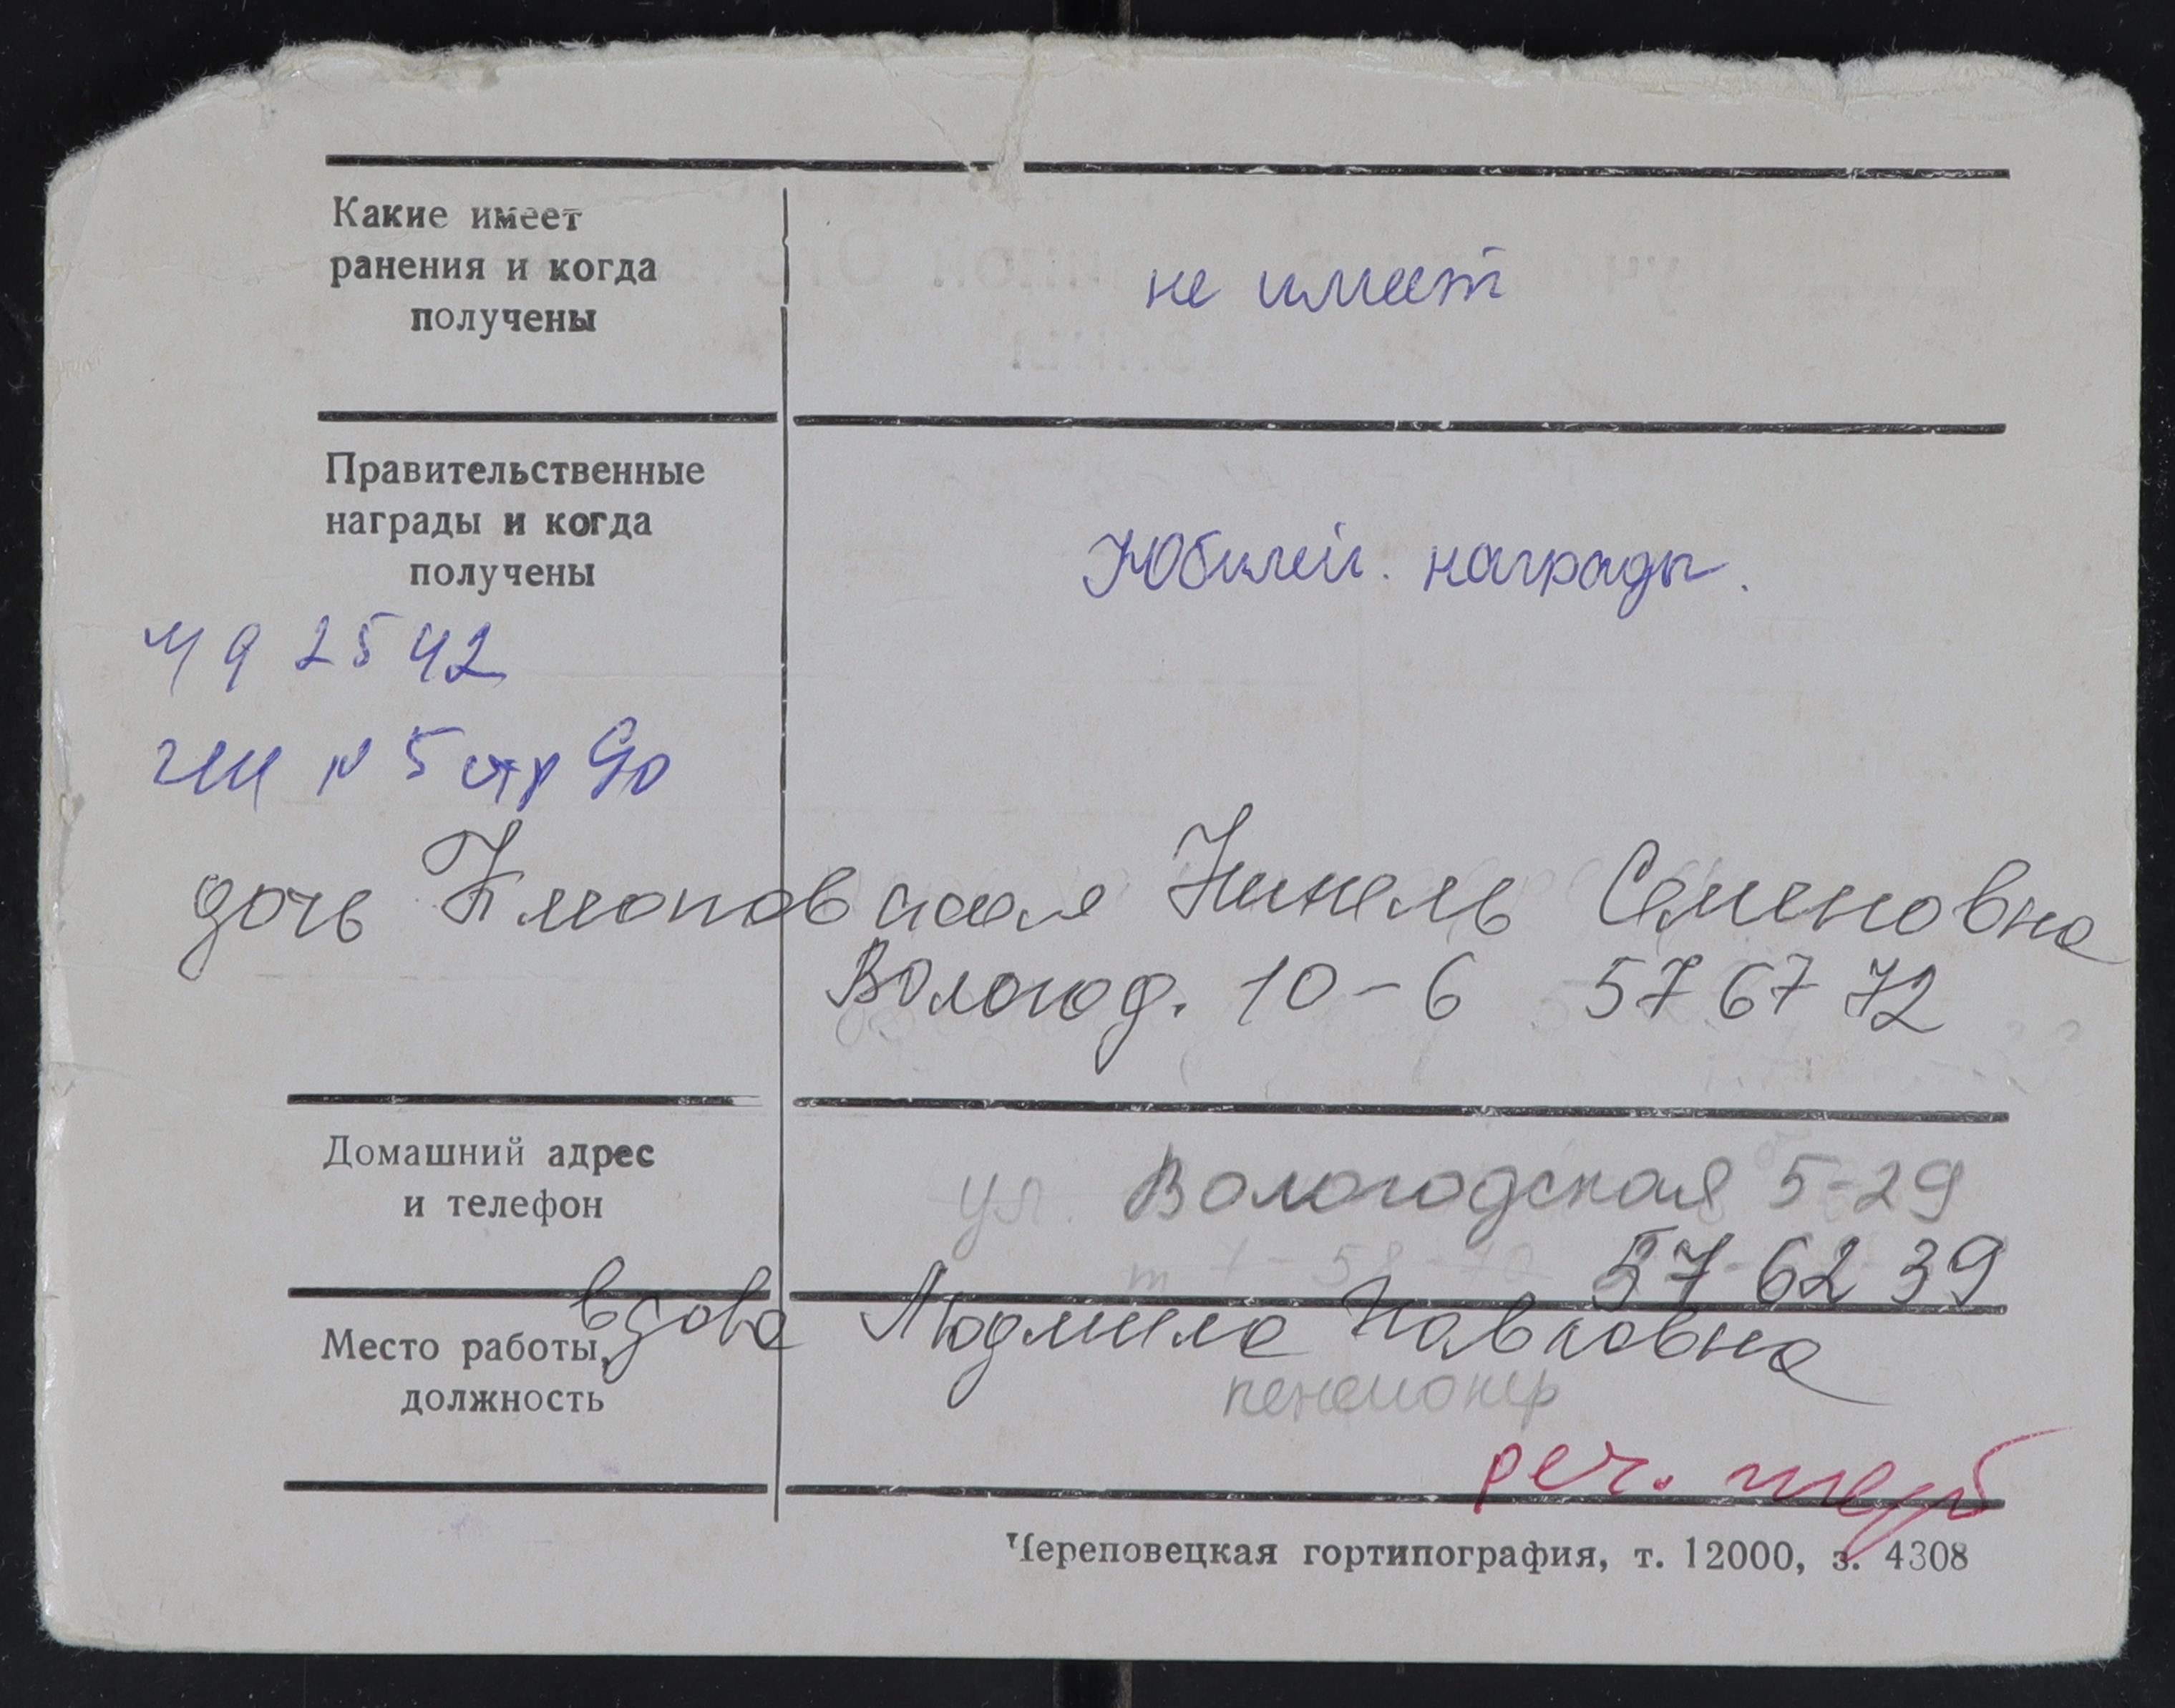 Какие имеет
ранения и когда
получены
не имеет
Правительственные
награды и когда
получены
Юбилей. награды.
Ч 9 2542
N 5 стр 90
дочь Клюповская Нинель Семеновна
Вологод. 10-6 57 67 72
Домашний адрес
и телефон
ул. Вологодская 5-29
57-62-39
вдова Людмила Павловна
Место работы,
должность
пенсионер
реч.
Череповецкая гортипография, т. 12000, з. 4308